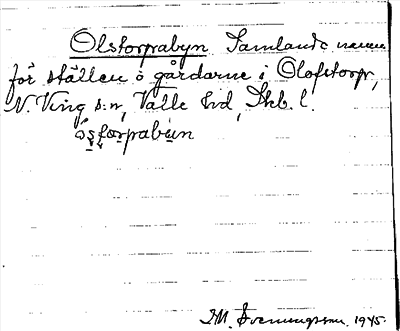 Olstorpabyn Samlande namn
för ställen o gårdarne i Olofstorp,
N. Ving s:n, Valle hd, Skb. l.
1945.